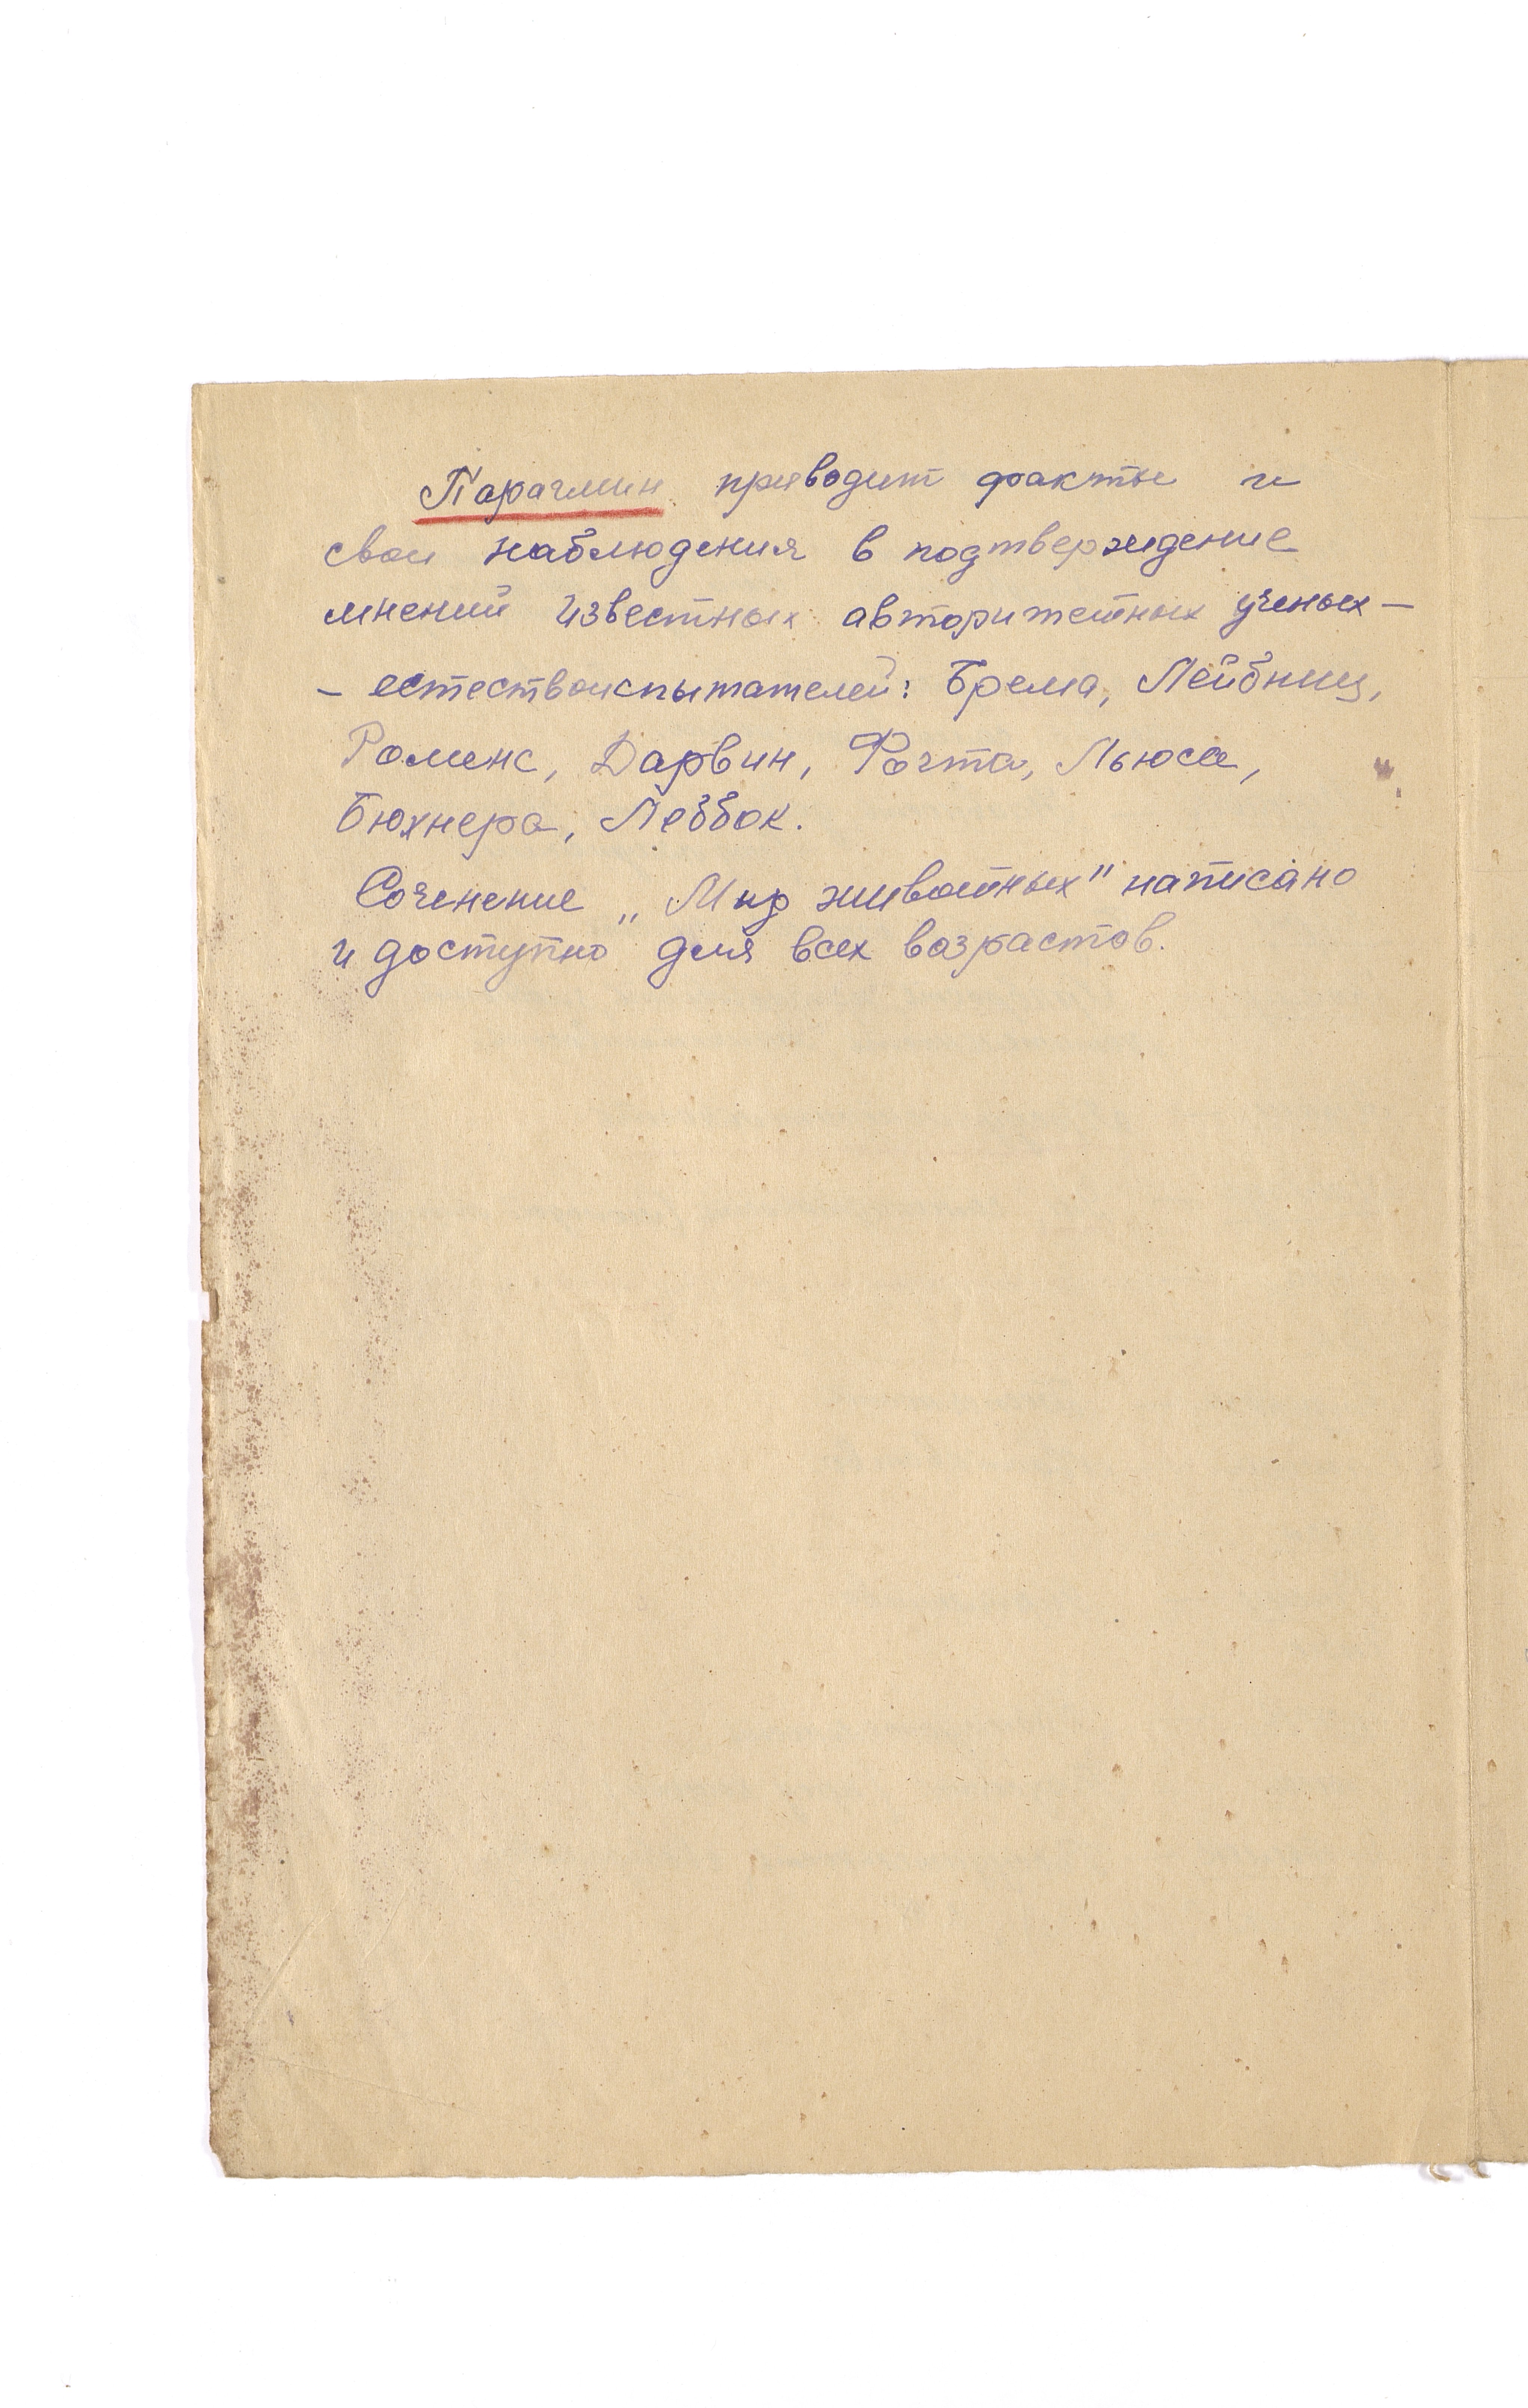 Парагмин приводит факты и
свои наблюдения в подтверждение
мнений известных авторитетных ученых —
— естествоиспытателей: Брема, Лейбниц,
Роменс, Дарвин, Фогта, Льюса,
Бюхнера, Леббок.
Соченение „Мир животных" написано
и доступно для всех возрастов.